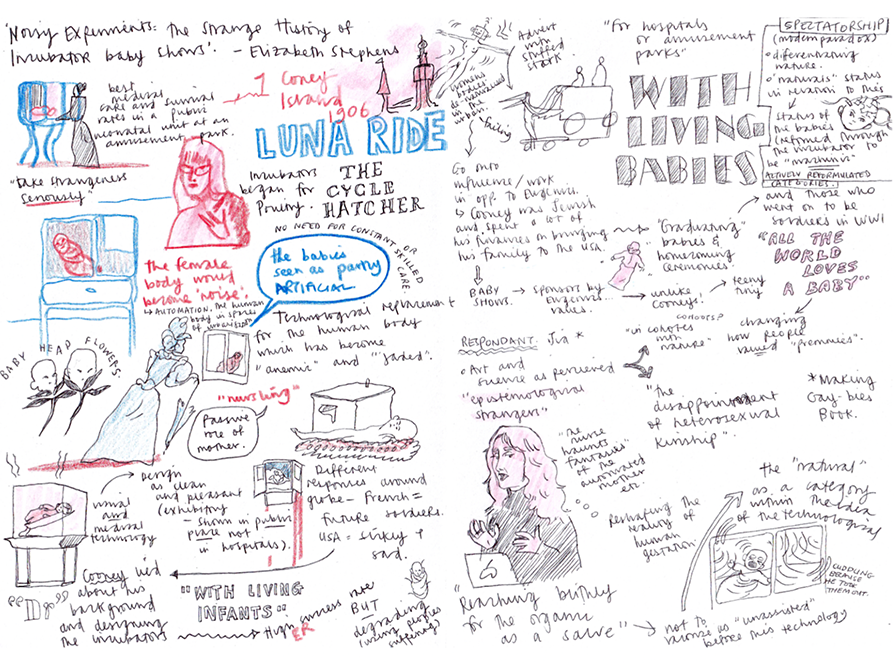 'Noisy Experiments: the Strange History of
Incubator Baby Shows'. - Elizabeth Stephens
best
medical
care and survival
rates in a public
neonatal unit at an
amusement park.
1 Coney
Island
1906
LUNA RIDE
"take strangeness
seriously"
Incubators
began for
Poultry.
THE
CYCLE
HATCHER
NO NEED FOR CONSTANT OR
SKILLED
CARE
the babies
seen as partly
ARTIFICIAL
the female
body would
become 'noise'.
AUTOMATION. The human
body in spaces
Technological replacement
for the human body
which has become
"anemic" and "jaded".
BABY HEAD FLOWERS
"nursling"
Passive
role of
mother.
Design
as clean
and pleasant
(exhibiting
- shown in public
place not
in hospitals).
visual
and
medical
technology
Different
responses around
globe - French =
future soldiers.
USA = sickly +
sad.
Cooney lied
about his
background
and designing
the incubators
"WITH LIVING
INFANTS"
High success rate
ER
BUT
degrading
(using peoples
suffering)
Advert
with
stuffed
stork.
womens
bodies
de-naturalised
in the
urban
"For hospitals
or amusement
parks"
WITH
LIVING
BABIES
SPECTATORSHIP
(modern paradox)
differentiating
nature.
"naturals" status
in relation to this
status of
the babies
(reformed through
the incubator to
be "machinic"
ACTIVELY REFORMULATED
CATEGORIES.
Go into
influence/work
in opp. to Eugenics.
Cooney was Jewish
and spent a lot of
his finances on bringing
his family to the USA.
"Graduating"
babies &
homecoming
ceremonies.
and those who
went on to be
soldiers in WWI
"ALL THE
WORLD
LOVES
A BABY"
BABY
SHOWS.
sponsors by
Eugenics
values.
unlike
Cooneys!
teeny
tiny
changing
how people
valued "premmies".
RESPONDANT. Jia *
Art and
science as perceived
"epistemological
strangers"
"in cohotes
with
nature"
COHOOTS?
"the
disappointment
of heterosexual
kinship".
*Making
Gay-bies
Book.
"The
nurse
haunts
fantasies"
of the
automated
mother
etc.
Reshaping the
reality of
human
gestation.
the "natural"
as a category
within the idea
of the technological
CUDDLING
BECAUSE
HE TOOK
THEM OUT.
"Reaching
for the organic
as a salve"
not to
valorize as "unassisted"
before this technology